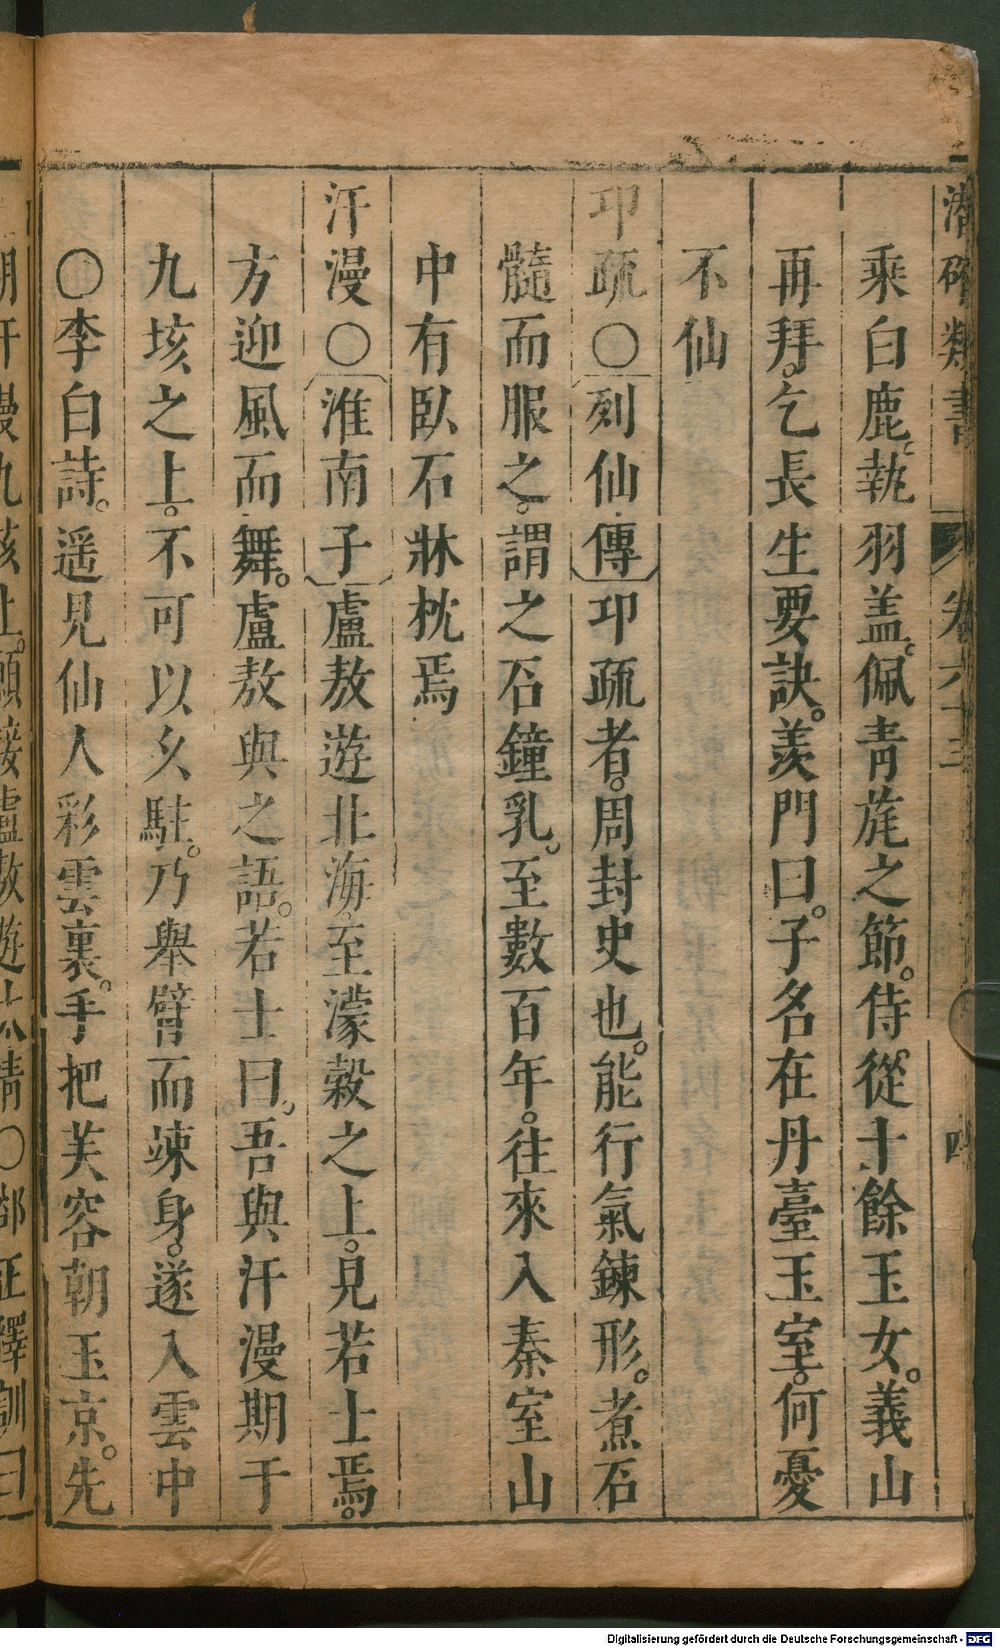 潛確類書 卷六十三 四
乘白鹿執羽盖佩青旄之節侍從十餘玉女義山
再拜乞長生要訣羨門曰子名在丹臺玉室何憂
不仙
卭疏○列仙傳卭疏者周封史也能行氣鍊形煮石
髓而服之謂之石鐘乳至數百年往來入秦室山
中有臥石牀枕焉
汗漫○淮南子盧敖遊北海至濛榖之上見若士焉
方迎風而舞盧敖與之語若士曰吾與汗漫期于
九垓之上不可以久駐乃舉臂而竦身遂入雲中
○李白詩遥見仙人彩雲裏手把芙容朝玉京先
期汗漫九垓上願接盧敖遊太清○郤正釋訓曰
Digitalisierung gefördert durch die Deutsche Forschungsgemeinschaft - DFG